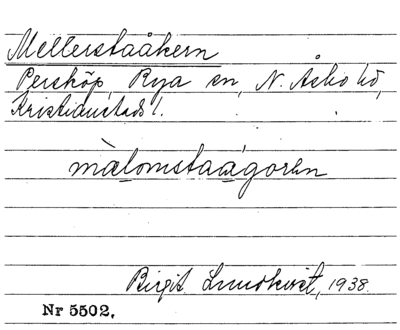 Mellerstaåkern
Persköp, Rya sn, N. Åsbo hd,
Kristianstads l.
màlomstaágorn
Birgit Lundkvist, 1938.
Nr 5502.